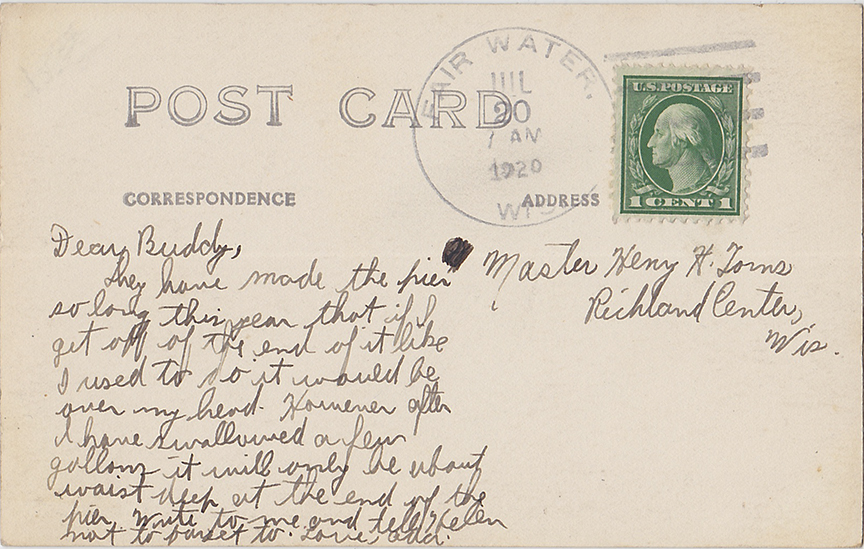 POST CARD
FAIR WATER,
JUL
20
7 AM
1920
WIS
U.S. POSTAGE
1 CENT 1
CORRESPONDENCE
ADDRESS
Dear Buddy,
They have made the pier
so long this year that if I
get off of the end of it like
I used to do it would be
over my head. However after
I have swallowed a few
gallons it will only be about
waist deep at the end of the
pier. Write to me and tell Helen
not to forget to. Love,
Master Henry H. Toms
Richland Center,
Wis.